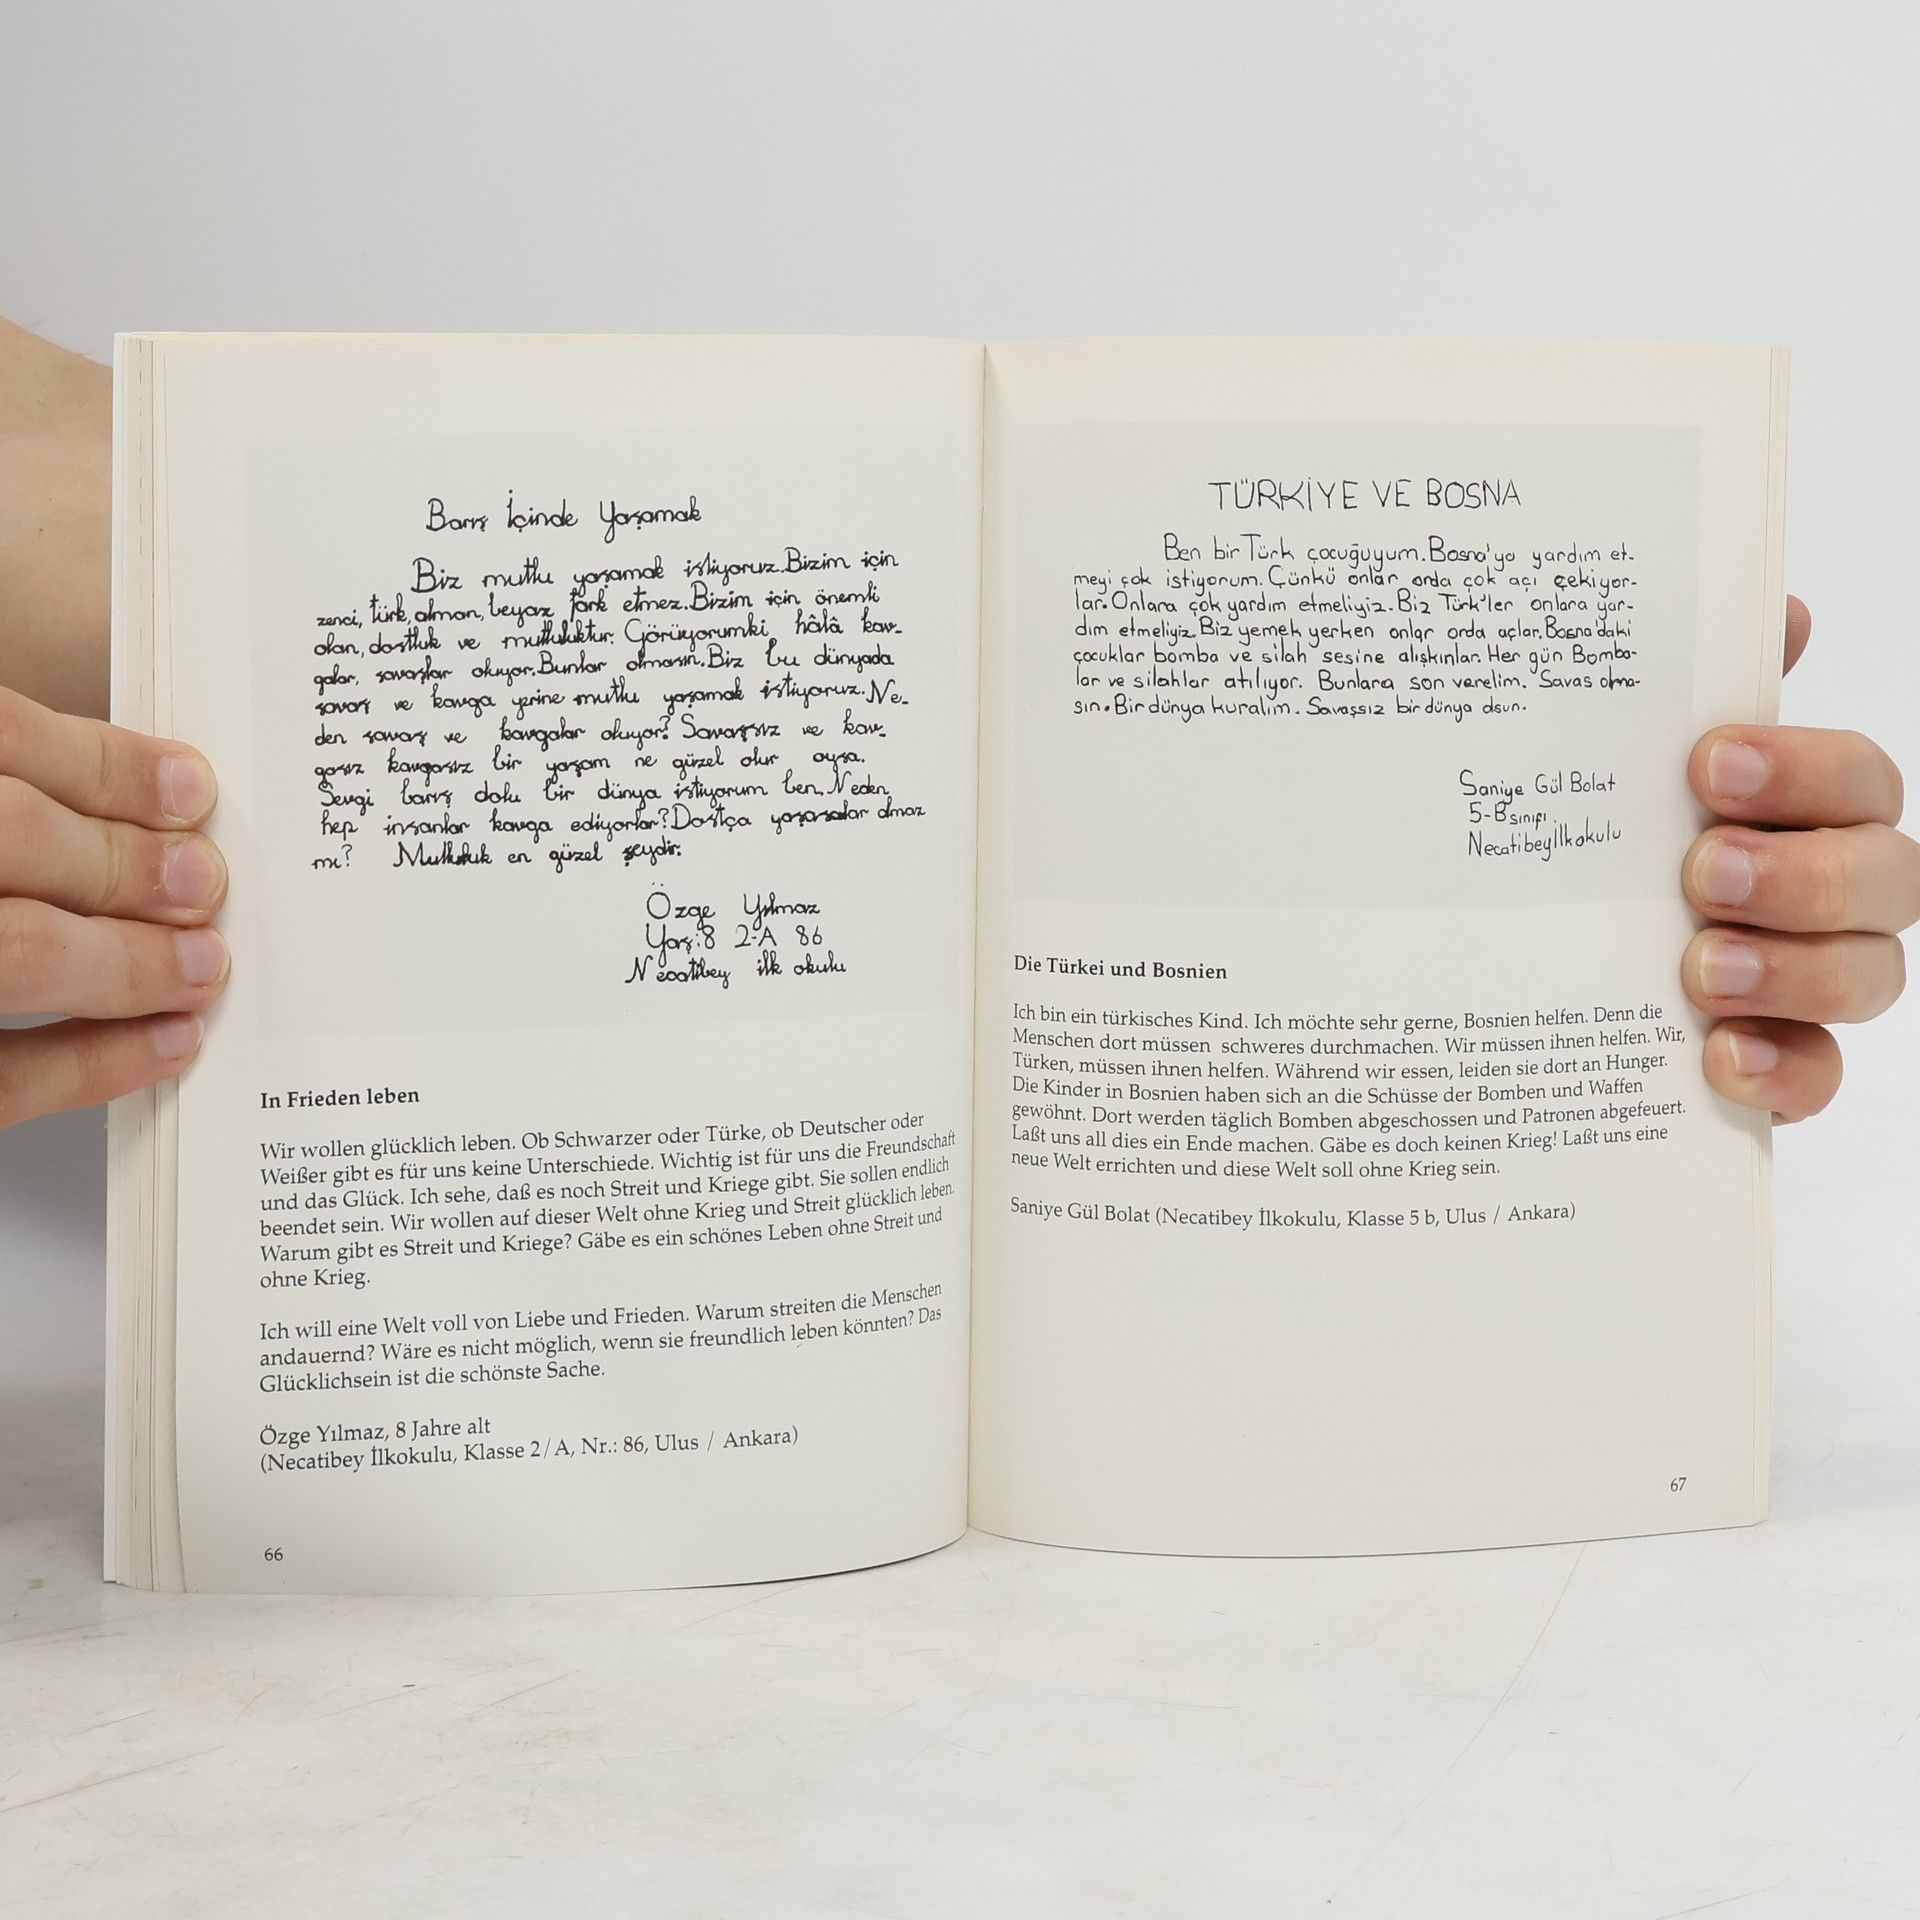 Barış İçinde Yaşamak
Biz mutlu yaşamak istiyoruz.Bizim için
zenci, türk, alman, beyaz fark etmez.Bizim için önemli
olan, dostluk ve mutluluktur. Görüyorumki hâlâ kav-
galar, savaşlar oluyor.Bunlar olmasın.Biz bu dünyada
savaş ve kavga yerine mutlu yaşamak istiyoruz. Ne-
den savaş ve kavgalar oluyor? Savaşsız ve kav-
gasız kavgasız bir yaşam ne güzel olur oysa.
Sevgi barış dolu bir dünya istiyorum ben. Neden
hep insanlar kavga ediyorlar? Dostça yaşasalar olmaz
mı? Mutluluk en güzel şeydir.
Özge Yılmaz
Yaş:8 2-A 86
Necatibey ilk okulu
In Frieden leben
Wir wollen glücklich leben. Ob Schwarzer oder Türke, ob Deutscher oder
Weißer gibt es für uns keine Unterschiede. Wichtig ist für uns die Freundschaft
und das Glück. Ich sehe, daß es noch Streit und Kriege gibt. Sie sollen endlich
beendet sein. Wir wollen auf dieser Welt ohne Krieg und Streit glücklich leben.
Warum gibt es Streit und Kriege? Gäbe es ein schönes Leben ohne Streit und
ohne Krieg.
Ich will eine Welt voll von Liebe und Frieden. Warum streiten die Menschen
andauernd? Wäre es nicht möglich, wenn sie freundlich leben könnten? Das
Glücklichsein ist die schönste Sache.
Özge Yılmaz, 8 Jahre alt
(Necatibey İlkokulu, Klasse 2/A, Nr.: 86, Ulus / Ankara)
66
TÜRKİYE VE BOSNA
Ben bir Türk çocuğuyum. Bosna'ya yardım et-
meyi çok istiyorum. Çünkü onlar orda çok açı çekiyor-
lar. Onlara çok yardım etmeliyiz. Biz Türk'ler onlara yar-
dım etmeliyiz. Biz yemek yerken onlar orda açlar. Bosna'daki
çocuklar bomba ve silah sesine alışkınlar. Her gün Bomba-
lar ve silahlar atılıyor. Bunlara son verelim. Savas olma-
sın. Bir dünya kuralim. Savaşsız bir dünya olsun.
Saniye Gül Bolat
5-B sınıfı
Necatibey İlkokulu
Die Türkei und Bosnien
Ich bin ein türkisches Kind. Ich möchte sehr gerne, Bosnien helfen. Denn die
Menschen dort müssen schweres durchmachen. Wir müssen ihnen helfen. Wir,
Türken, müssen ihnen helfen. Während wir essen, leiden sie dort an Hunger.
Die Kinder in Bosnien haben sich an die Schüsse der Bomben und Waffen
gewöhnt. Dort werden täglich Bomben abgeschossen und Patronen abgefeuert.
Laßt uns all dies ein Ende machen. Gäbe es doch keinen Krieg! Laßt uns eine
neue Welt errichten und diese Welt soll ohne Krieg sein.
Saniye Gül Bolat (Necatibey İlkokulu, Klasse 5 b, Ulus / Ankara)
67